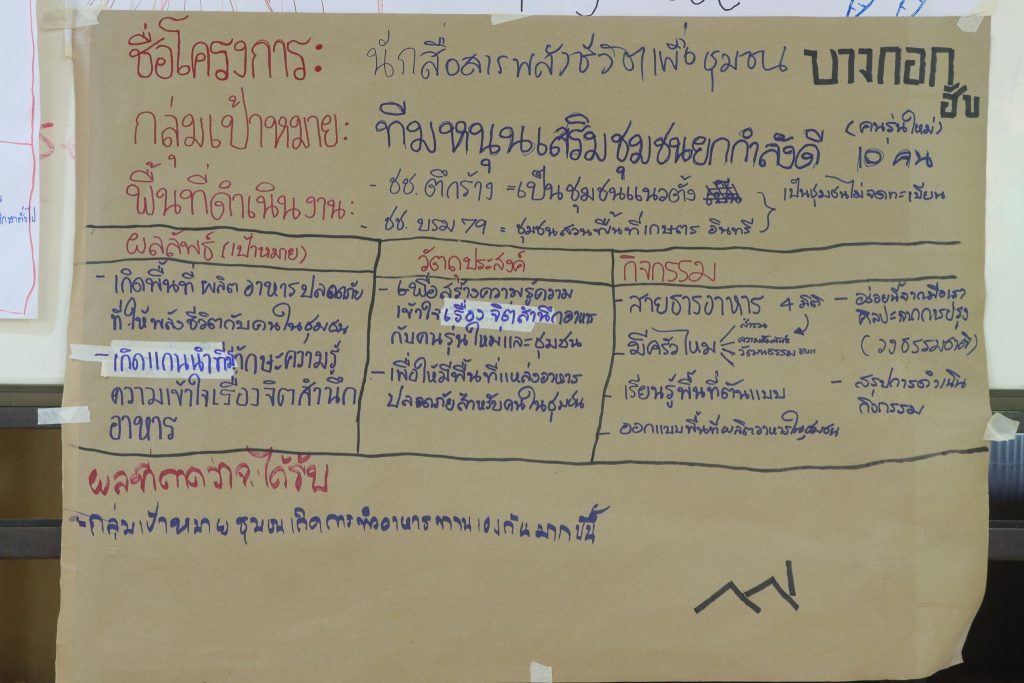 ชื่อโครงการ: นักสื่อสารพลังชีวิตเพื่อชุมชน บางกอกฮับ
กลุ่มเป้าหมาย: ทีมหนุนเสริมชุมชนยกกำลังดี (คนรุ่นใหม่) 10 คน
พื้นที่ดำเนินงาน:
- ชช. ตึกร้าง = เป็นชุมชนแนวตั้ง
- ชช. บรม 79 = ชุมชนสวนพื้นที่เกษตร อินทรี
เป็นชุมชนไม่จดทะเบียน
ผลลัพธ์ (เป้าหมาย)
- เกิดพื้นที่ ผลิต อาหาร ปลอดภัย
ที่ให้พลังชีวิตกับคนในชุมชน
- เกิดแกนนำที่มีทักษะความรู้
ความเข้าใจเรื่องจิตสำนึก
อาหาร
วัตถุประสงค์
- เพื่อสร้างความรู้ความ
เข้าใจเรื่อง จิตสำนึกอาหาร
กับคนรุ่นใหม่และชุมชน
- เพื่อให้มีพื้นที่แหล่งอาหาร
ปลอดภัยสำหรับคนในชุมชน
กิจกรรม
- สายธารอาหาร 4 มิติ
- มีครัวไหม
วัฒนธรรม อาหาร
- เรียนรู้พื้นที่ต้นแบบ
- ออกแบบพื้นที่ผลิตอาหารในชุมชน
- อร่อยนี้จากมือเรา
ศิลปะจากการปรุง
(วงธรรมชาติ)
- สรุปการดำเนิน
กิจกรรม
ผลที่คาดว่าจะได้รับ
- กลุ่มเป้าหมาย ชุมชน เกิดการทำอาหารทานเองกันมากขึ้น